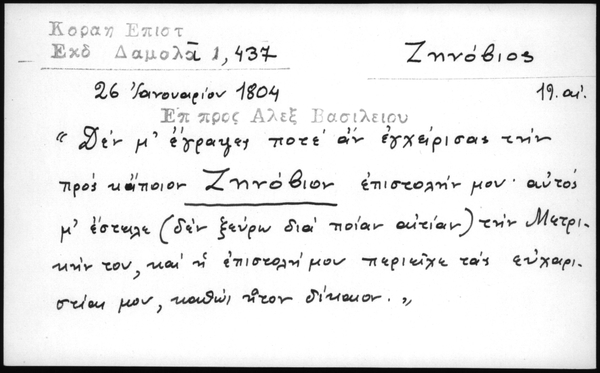 Κοραη Επιστ
Εκδ Δαμολᾶ 1, 437
Ζηνόβιος
26 Ἰανουαρίου 1804
19. αἰ.
Επ προς Αλεξ Βασιλειου
"Δέν μ' ἔγραψες ποτέ ἄν ἐγχείρισας τήν
πρός κἄποιον Ζηνόβιον ἐπιστολήν μου· αὐτός
μ' ἔστειλε (δέν ξεύρω διά ποίαν αἰτίαν) τήν Μετρι-
κήν του, καί ἡ ἐπιστολή μου περιεῖχε τάς εὐχαρι-
στίας μου, καθώς ἦτον δίκαιον."